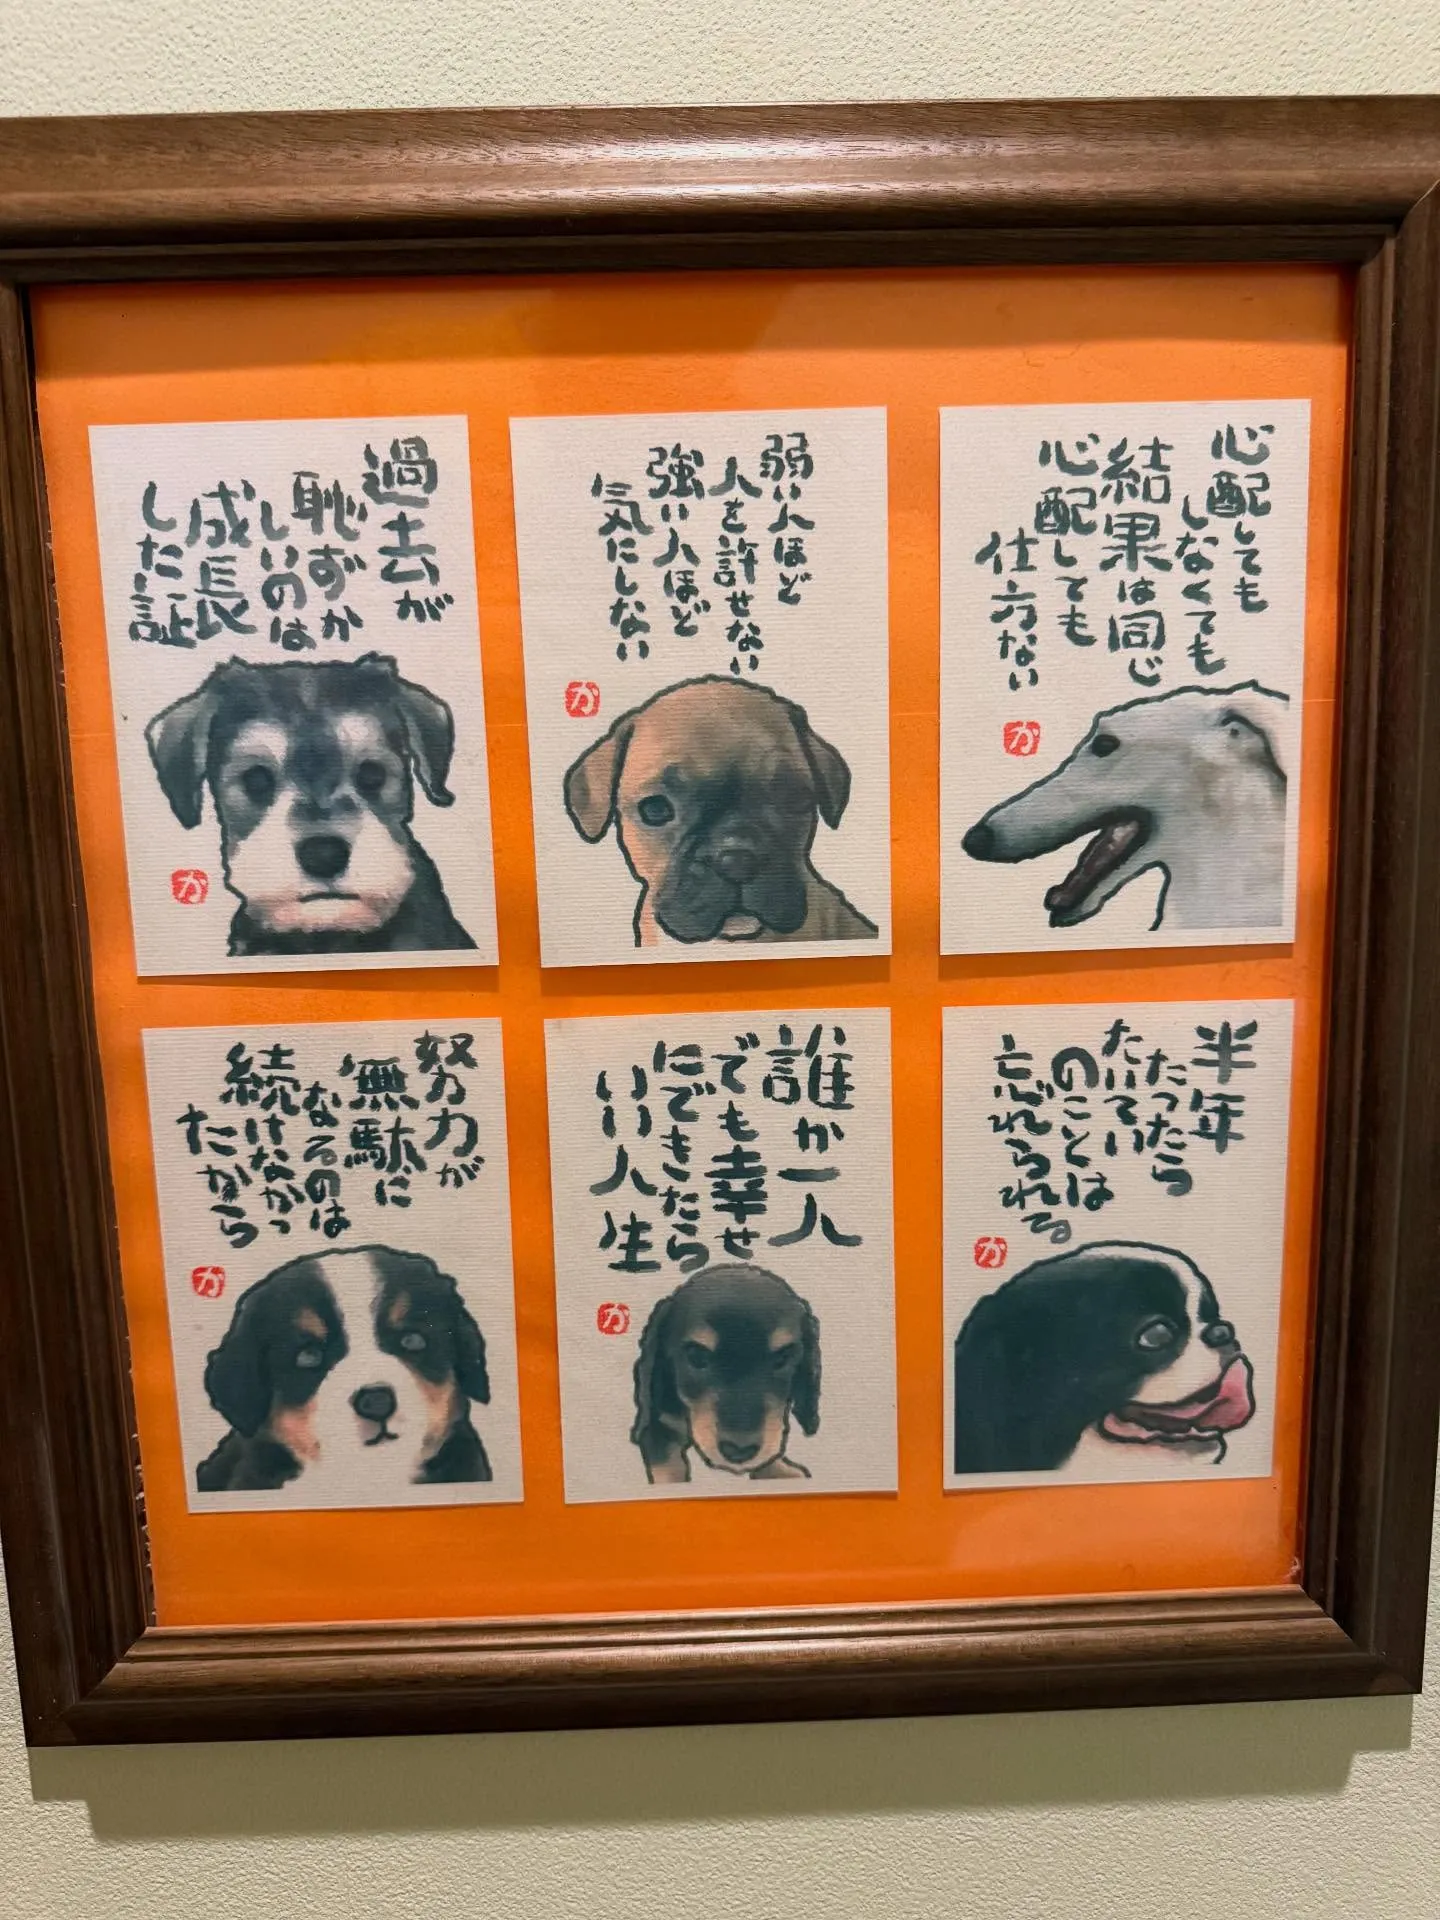 過去が
恥ずか
しいのは
成長
した証
か
弱い人ほど
人を許せない
強い人ほど
気にしない
か
心配しても
しなくても
結果は同じ
心配しても
仕方ない
か
努力が
無駄に
なるのは
続けなかっ
たから
か
誰か一人
でも幸せ
にできたら
いい人生
か
半年
たったら
たいてい
のことは
忘れられる
か